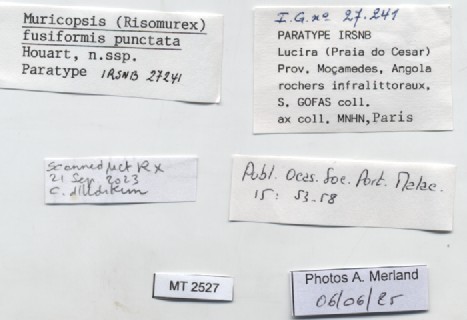 Muricopsis (Risomurex)
fusiformis punctata
Houart, n.ssp.
Paratype IRSNB 27241
I.G.nº 27.241
PARATYPE IRSNB
Lucira (Praia do Cesar)
Prov. Moçamedes, Angola
rochers infralittoraux.
S. GOFAS coll.
ax coll. MNHN, Paris
Scanned µct Rx
21 Sep 2023
C.
Publ. Ocas. Soc. Port. Malac.
15: 53-58
MT 2527
Photos A. Merland
06/06/25